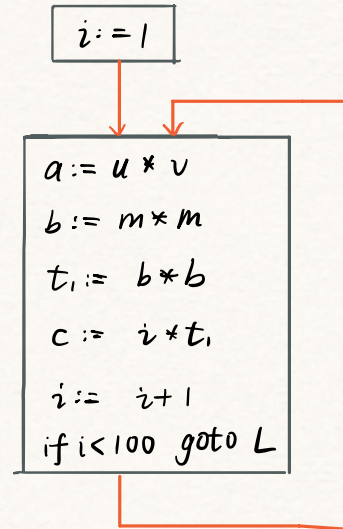 i:=1
a:= u * v
b:= m*m
t₁:= b*b
c:= i*t₁
i:= i+1
if i<100 goto L